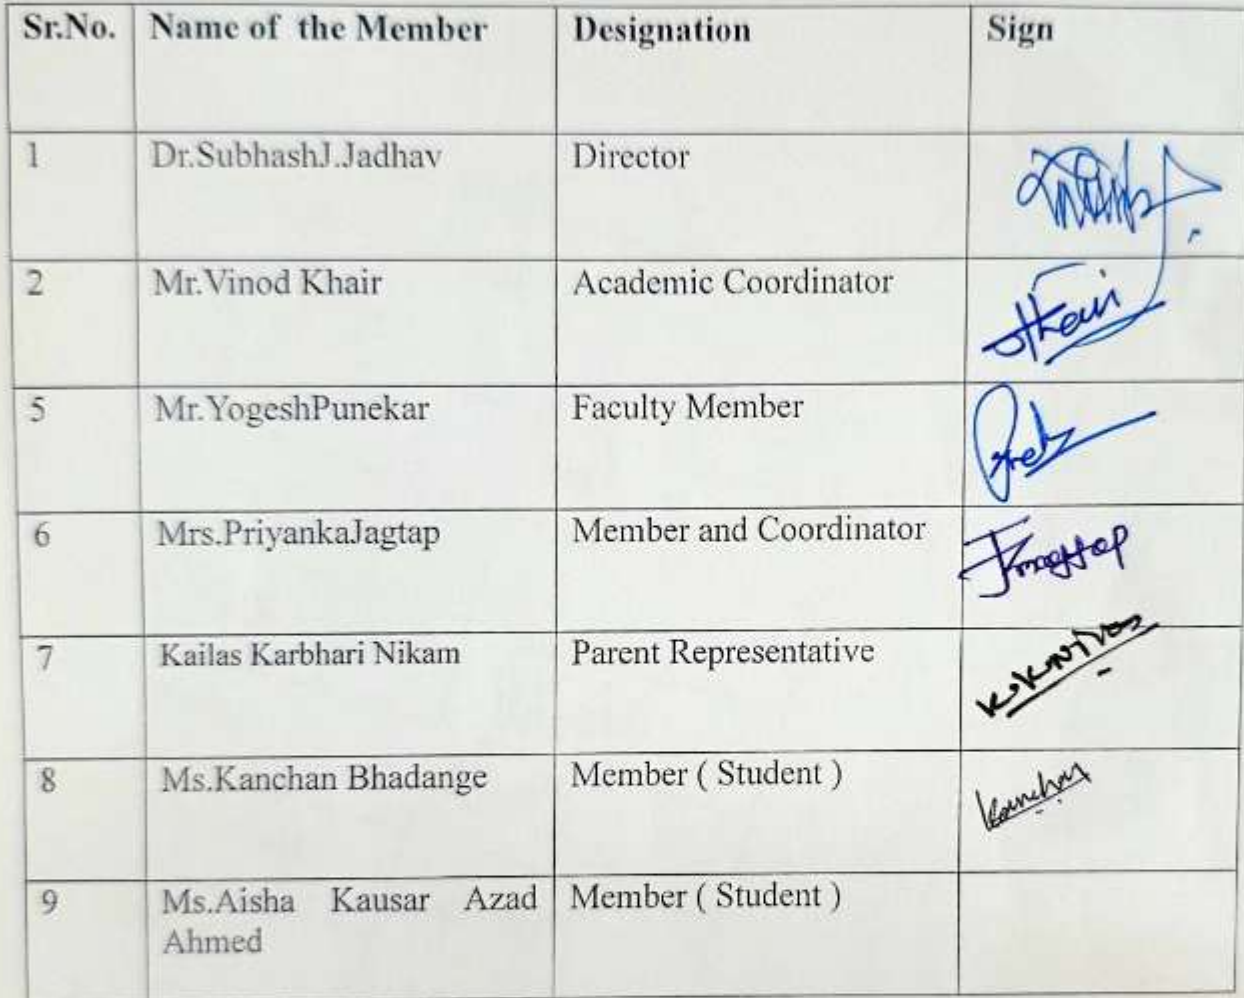 Sr.No. Name of the Member Designation Sign
1 Dr.SubhashJ.Jadhav Director
2 Mr.Vinod Khair Academic Coordinator
5 Mr.YogeshPunekar Faculty Member
6 Mrs.PriyankaJagtap Member and Coordinator
7 Kailas Karbhari Nikam Parent Representative
8 Ms.Kanchan Bhadange Member ( Student ) Kanchan
9 Ms.Aisha Kausar Azad Member ( Student )
Ahmed